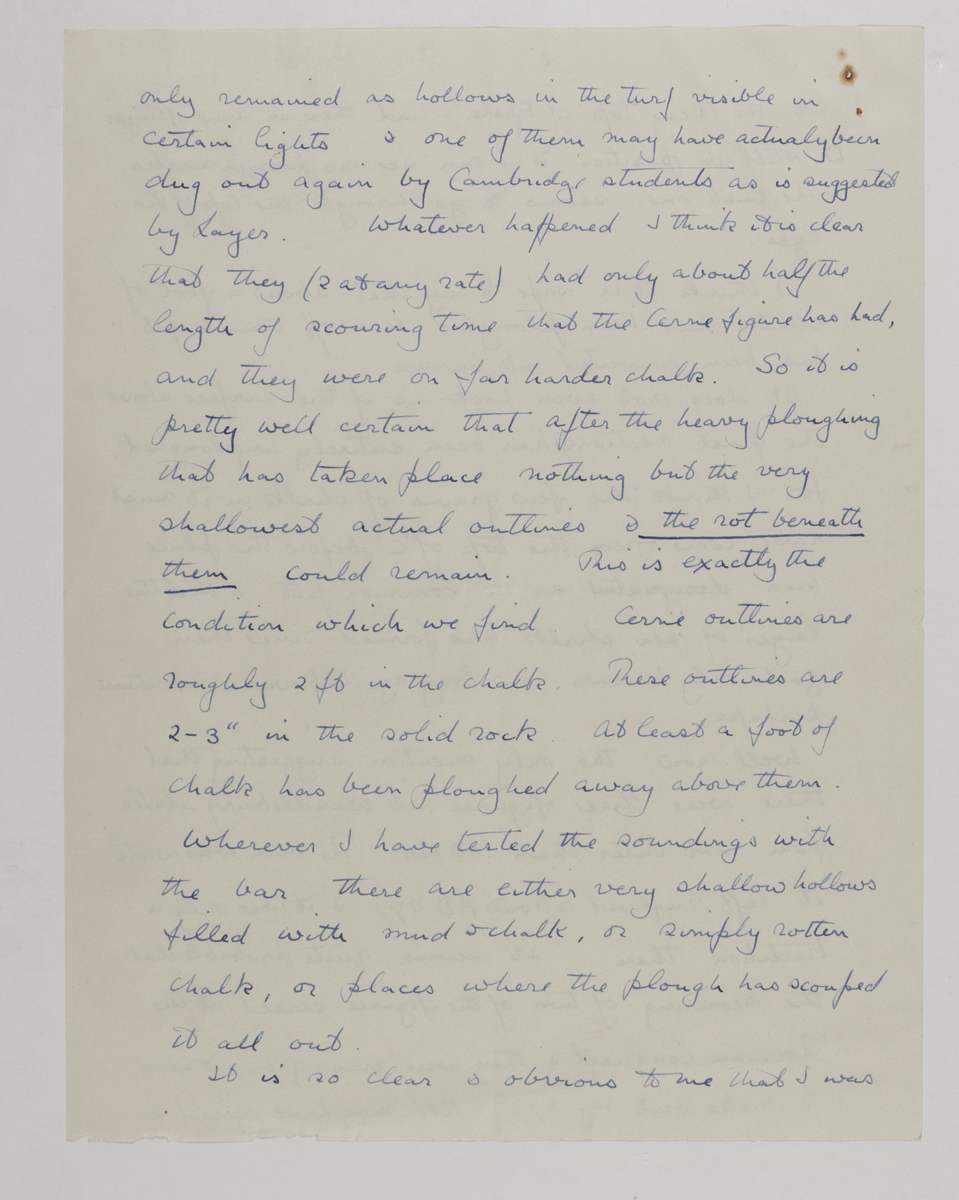 only remained as hollows in the turf visible in
certain lights & one of them may have actualy been
dug out again by Cambridge students as is suggested
by Layer. Whatever happened I think it is clear
that they (2 at any rate) had only about half the
length of scouring time that the Cerne figure has had,
and they were on far harder chalk. So it is
pretty well certain that after the heavy ploughing
that has taken place nothing but the very
shallowest actual outlines & the rot beneath
them could remain. This is exactly the
condition which we find. Cerne outlines are
roughly 2 ft in the chalk. These outlines are
2-3" in the solid rock. At least a foot of
chalk has been ploughed away above them.
Wherever I have tested the soundings with
the bar there are either very shallow hollows
filled with mud & chalk, or simply rotten
chalk, or places where the plough has scouped
it all out.
It is so clear & obvious to me that I was